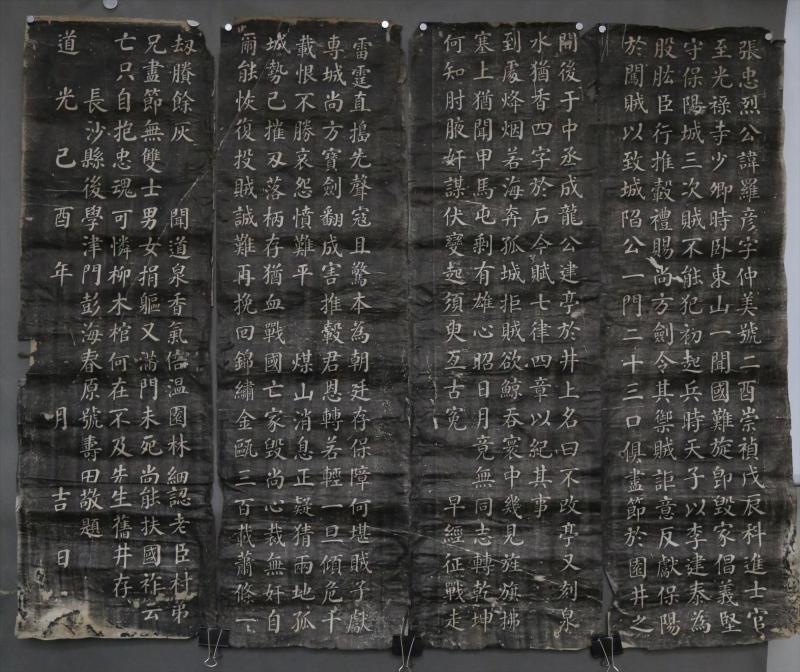 張忠烈公諱羅彦字仲美號二酉崇禎戊辰科進士官
至光祿寺少卿時卧東山一聞國難旋即毀家倡義堅
守保陽城三次賊不能犯初起兵時天子以李建泰為
股肱臣行推轂禮賜尚方劍令其禦賊詎意反獻保陽
於闖賊以致城陷公一門二十三口俱盡節於園井之
間後于中丞成龍公建亭於井上名曰不改亭又刻泉
水猶香四字於石今賦七律四章以紀其事
到處烽烟若海奔孤城拒賊欲鯨吞寰中幾見旌旗拂
塞上猶聞甲馬屯剩有雄心昭日月竟無同志轉乾坤
何知肘腋奸謀伏變起須臾亙古寃 早經征戰走
雷霆直搗先聲寇且驚本為朝廷存保障何堪賊子獻
專城尚方寶劍翻成害推轂君恩轉若輕一旦傾危千
載恨不勝哀怨憤難平 煤山消息正疑猜兩地孤
城勢已摧刃落柄存猶血戰國亡家毀尚心裁無奸自
爾能恢復投賊誠難再挽回錦繡金甌三百載蕭條一
刼賸餘灰 聞道泉香氣倍温園林細認老臣村弟
兄盡節無雙士男女捐軀又滿門未死尚能扶國祚云
亡只自抱忠魂可憐柳木棺何在不及先生舊井存
長沙縣後學津門彭海春原號壽田敬題
道光己酉年 月吉日